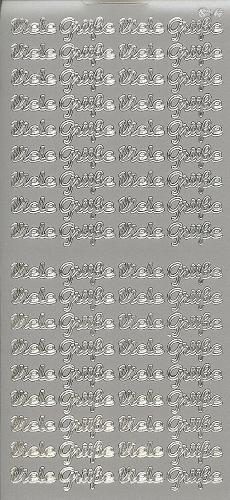 Viele Grüße Viele Grüße
Viele Grüße Viele Grüße
Viele Grüße Viele Grüße
Viele Grüße Viele Grüße
Viele Grüße Viele Grüße
Viele Grüße Viele Grüße
Viele Grüße Viele Grüße
Viele Grüße Viele Grüße
Viele Grüße Viele Grüße
Viele Grüße Viele Grüße
Viele Grüße Viele Grüße
Viele Grüße Viele Grüße
Viele Grüße Viele Grüße
Viele Grüße Viele Grüße
Viele Grüße Viele Grüße
Viele Grüße Viele Grüße
Viele Grüße Viele Grüße
Viele Grüße Viele Grüße